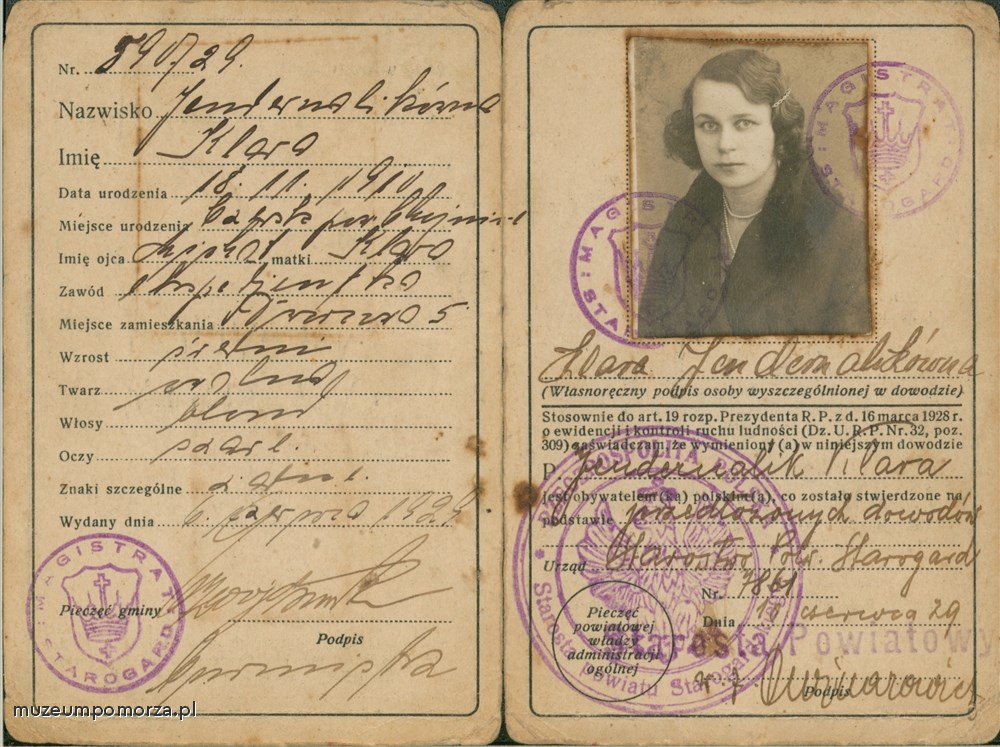 Nr. 590/29.
Nazwisko Jendernalikówna
Imię Klara
Data urodzenia 18. 11. 1910
Miejsce urodzenia Czersk pow. Chojnice
Imię ojca matki Klara
Zawód ekspedjentka
Miejsce zamieszkania 5.
Wzrost średni
Twarz
Włosy blond
Oczy szare.
Znaki szczególne żadne.
Wydany dnia 6. czerwca 1929
MAGISTRAT
STAROGARD
Pieczęć gminy
Podpis
MAGISTRAT
STAROGARD
MAGISTRAT
STAROGARD
Klara Jendernalikówna
(Własnoręczny podpis osoby wyszczególnionej w dowodzie)
Stosownie do art. 19 rozp. Prezydenta R. P. z d. 16 marca 1928 r.
o ewidencji i kontroli ruchu ludności (Dz. U. R. P. Nr. 32, poz.
309) zaświadczam, że wymieniony (a) w niniejszym dowodzie
P Jendernalik Klara
jest obywatelem(ką) polskim(ą), co zostało stwierdzone na
podstawie przedłożonych dowodów
Urząd Starostwo Pow. Starogard
Nr. 7861
Dnia 18 czerwca 29
Pieczęć
powiatowej
władzy
administracji
ogólnej
Starosta Powiatowy
Podpis
RZECZPOSPOLITA POLSKA
Starosta powiatu Starogard
muzeumpomorza.pl